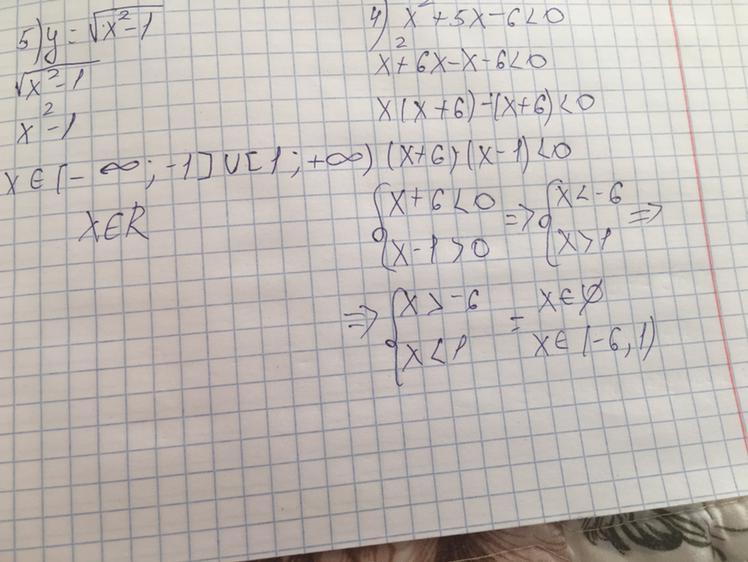 5) y = √x²-1
√x²-1
x²-1
x ∈ [-∞; -1] ∪ [1; +∞)
x ∈ R
4) x² + 5x - 6 < 0
x² + 6x - x - 6 < 0
x(x+6) - (x+6) < 0
(x+6)(x-1) < 0
{ x+6 < 0 => { x < -6 =>
x-1 > 0 x > 1
=> { x > -6 = x ∈ ∅
x < 1 x ∈ (-6, 1)